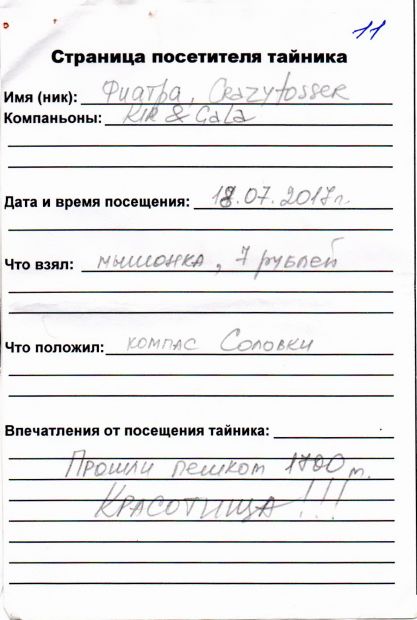 11
Страница посетителя тайника
Имя (ник): Фиатра, Crazyfosser
Компаньоны: KIR & Gala
Дата и время посещения: 18.07.2017г.
Что взял: мышонка, 7 рублей
Что положил: компас Соловки
Впечатления от посещения тайника:
Прошли пешком 1700 м.
Красотища!!!